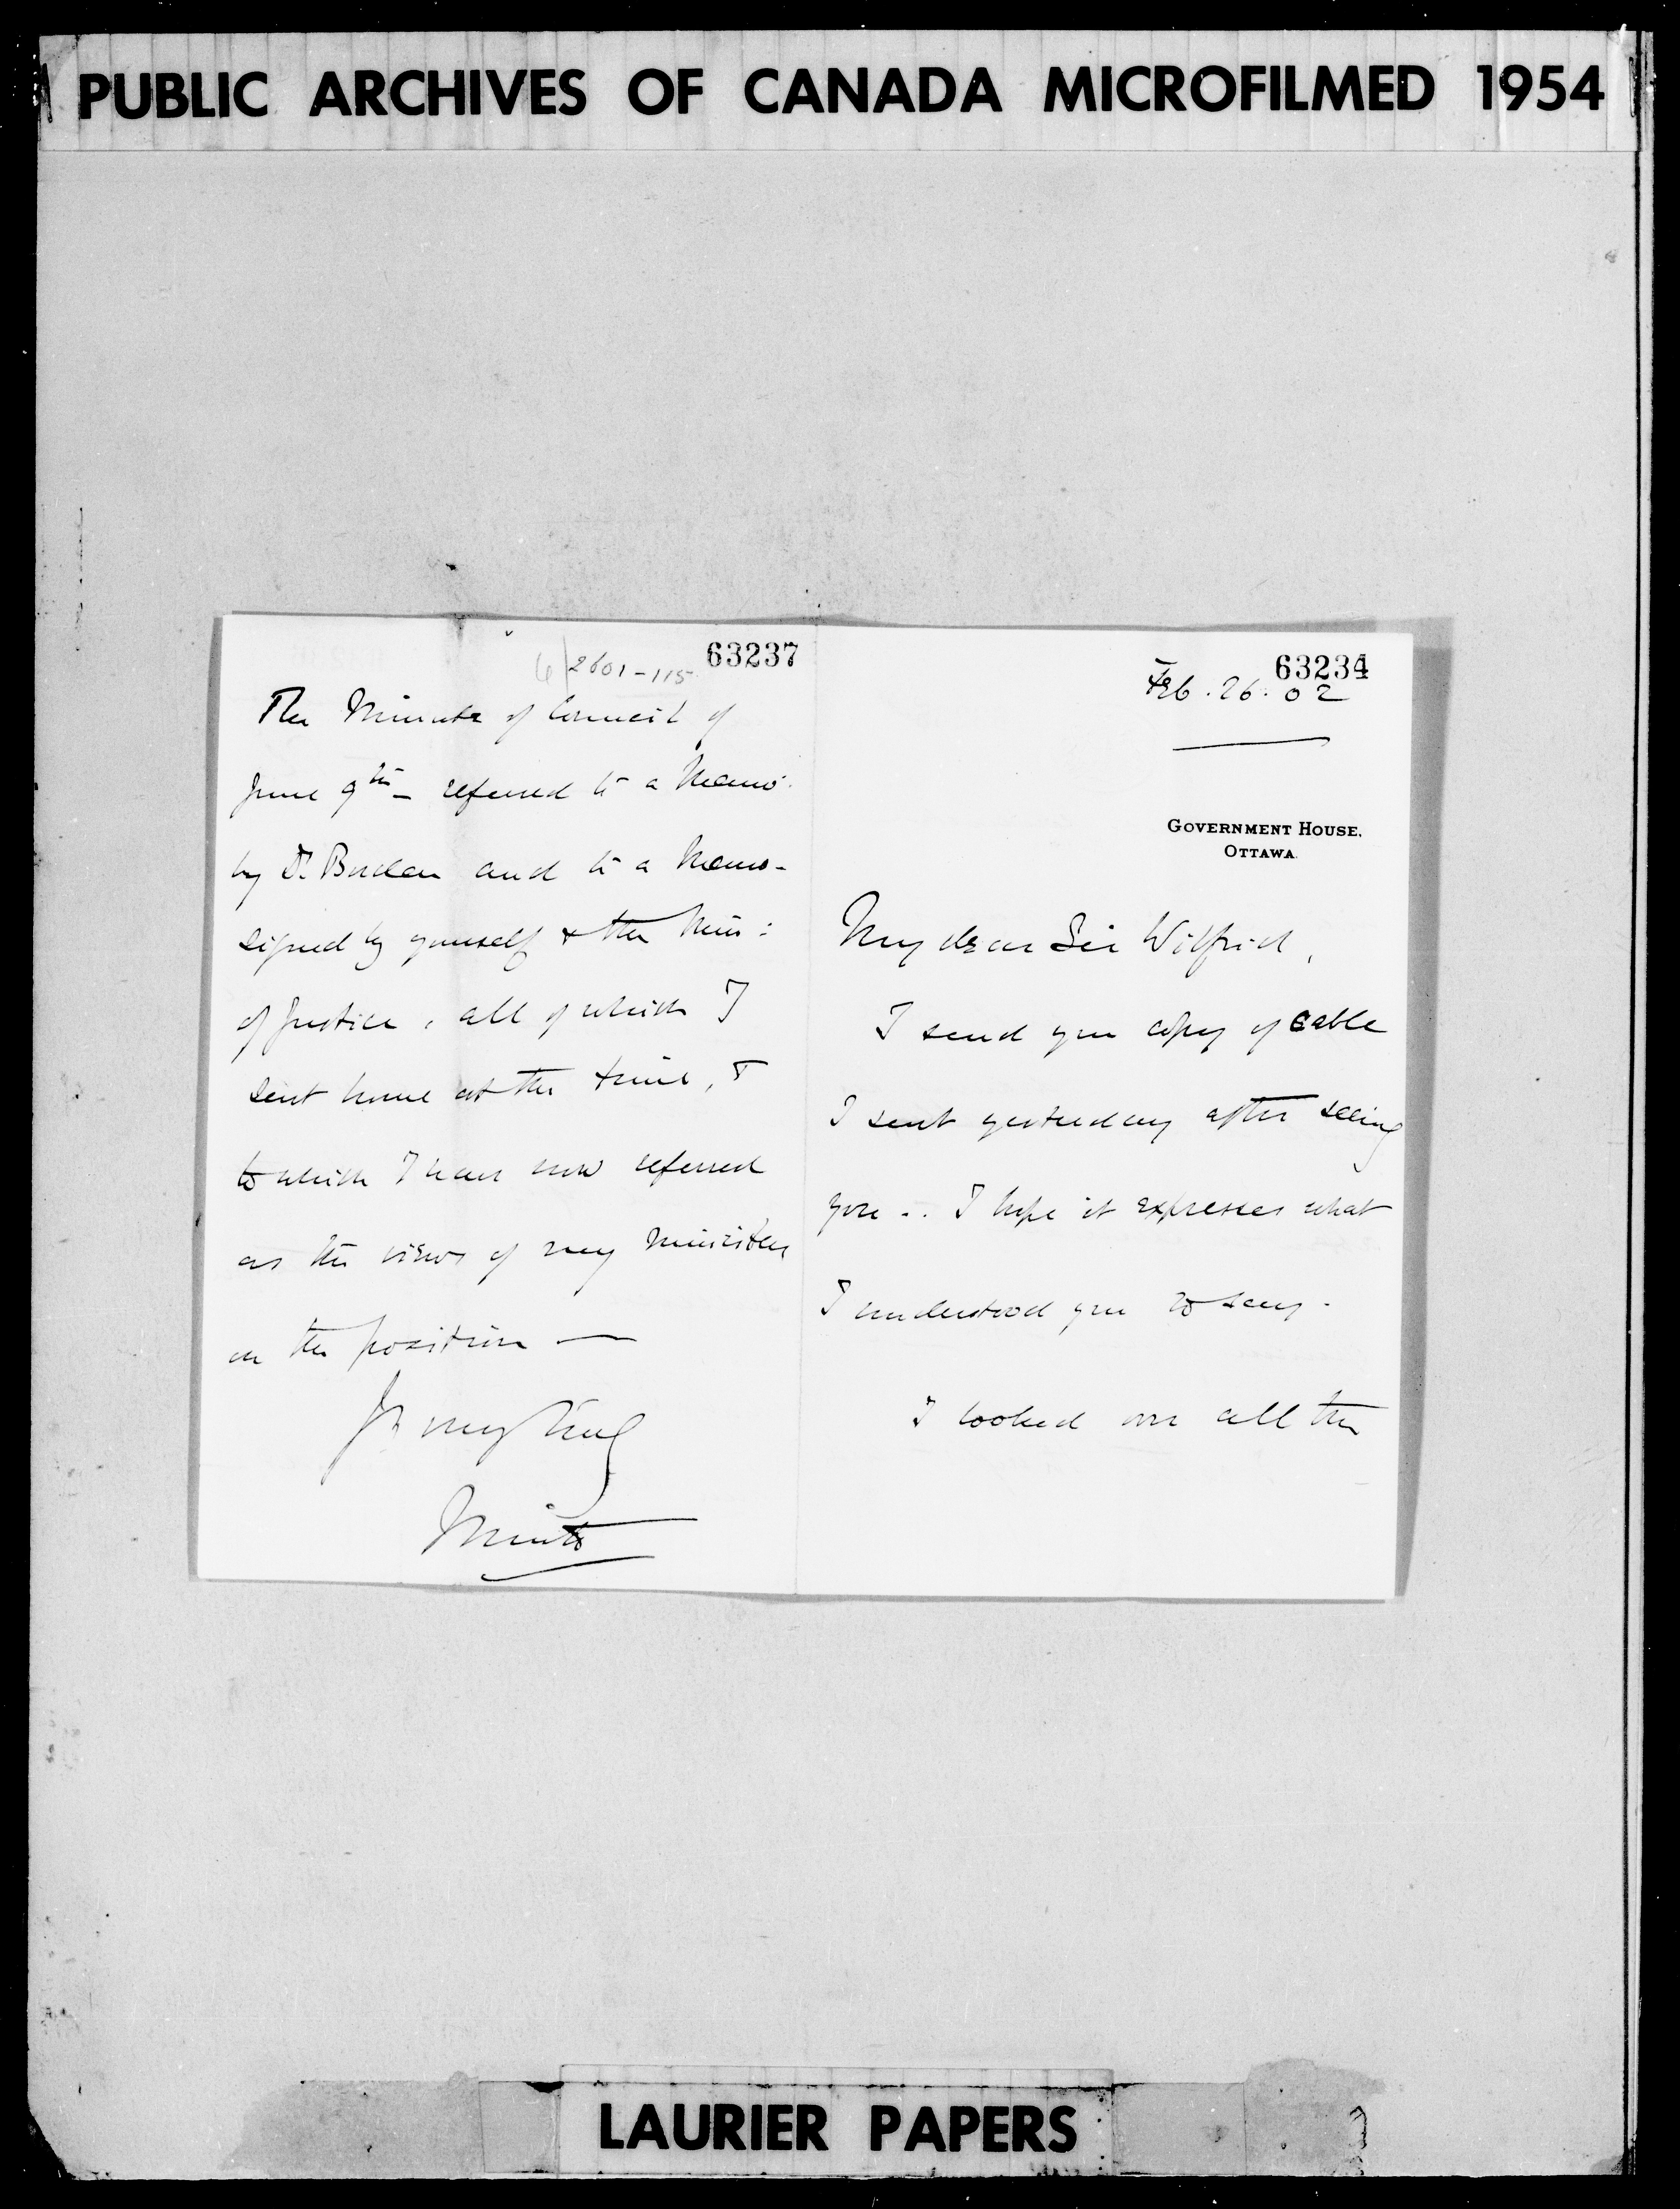 PUBLIC ARCHIVES OF CANADA MICROFILMED 1954
63237
2601-115
The Minute of Council of
June 9th - referred to a Memo:
by Dr. Borden and to a Memo-
signed by yourself & the Min:
of Justice, all of which I
sent home at the time, &
to which I have now referred
as the views of my Ministers
on the position —
Yrs very truly
Minto
63234
Feb. 26. 02
GOVERNMENT HOUSE,
OTTAWA.
My dear Sir Wilfrid,
I send you copy of cable
I sent yesterday after seeing
you .. I hope it expresses what
I understood you to say.
I looked over all the
LAURIER PAPERS